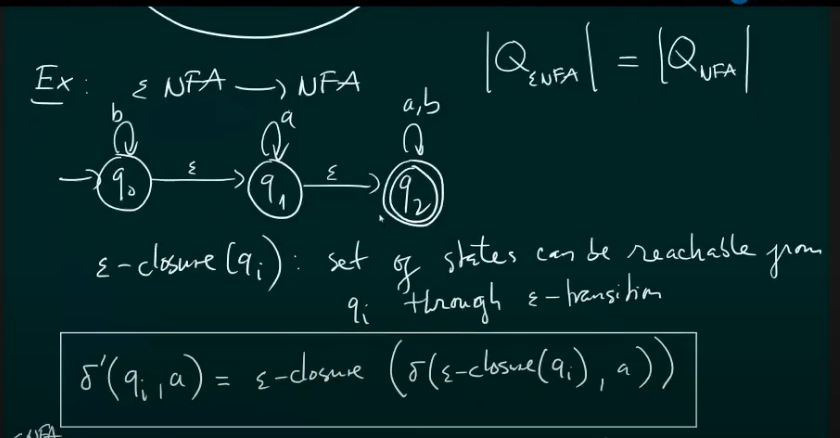 |Q_εNFA| = |Q_NFA|
Ex: ε NFA → NFA
b a a,b
→ q₀ ε → q₁ ε → q₂
ε-closure(qᵢ): set of states can be reachable from
qᵢ through ε-transition
δ'(qᵢ, a) = ε-closure (δ(ε-closure(qᵢ), a))